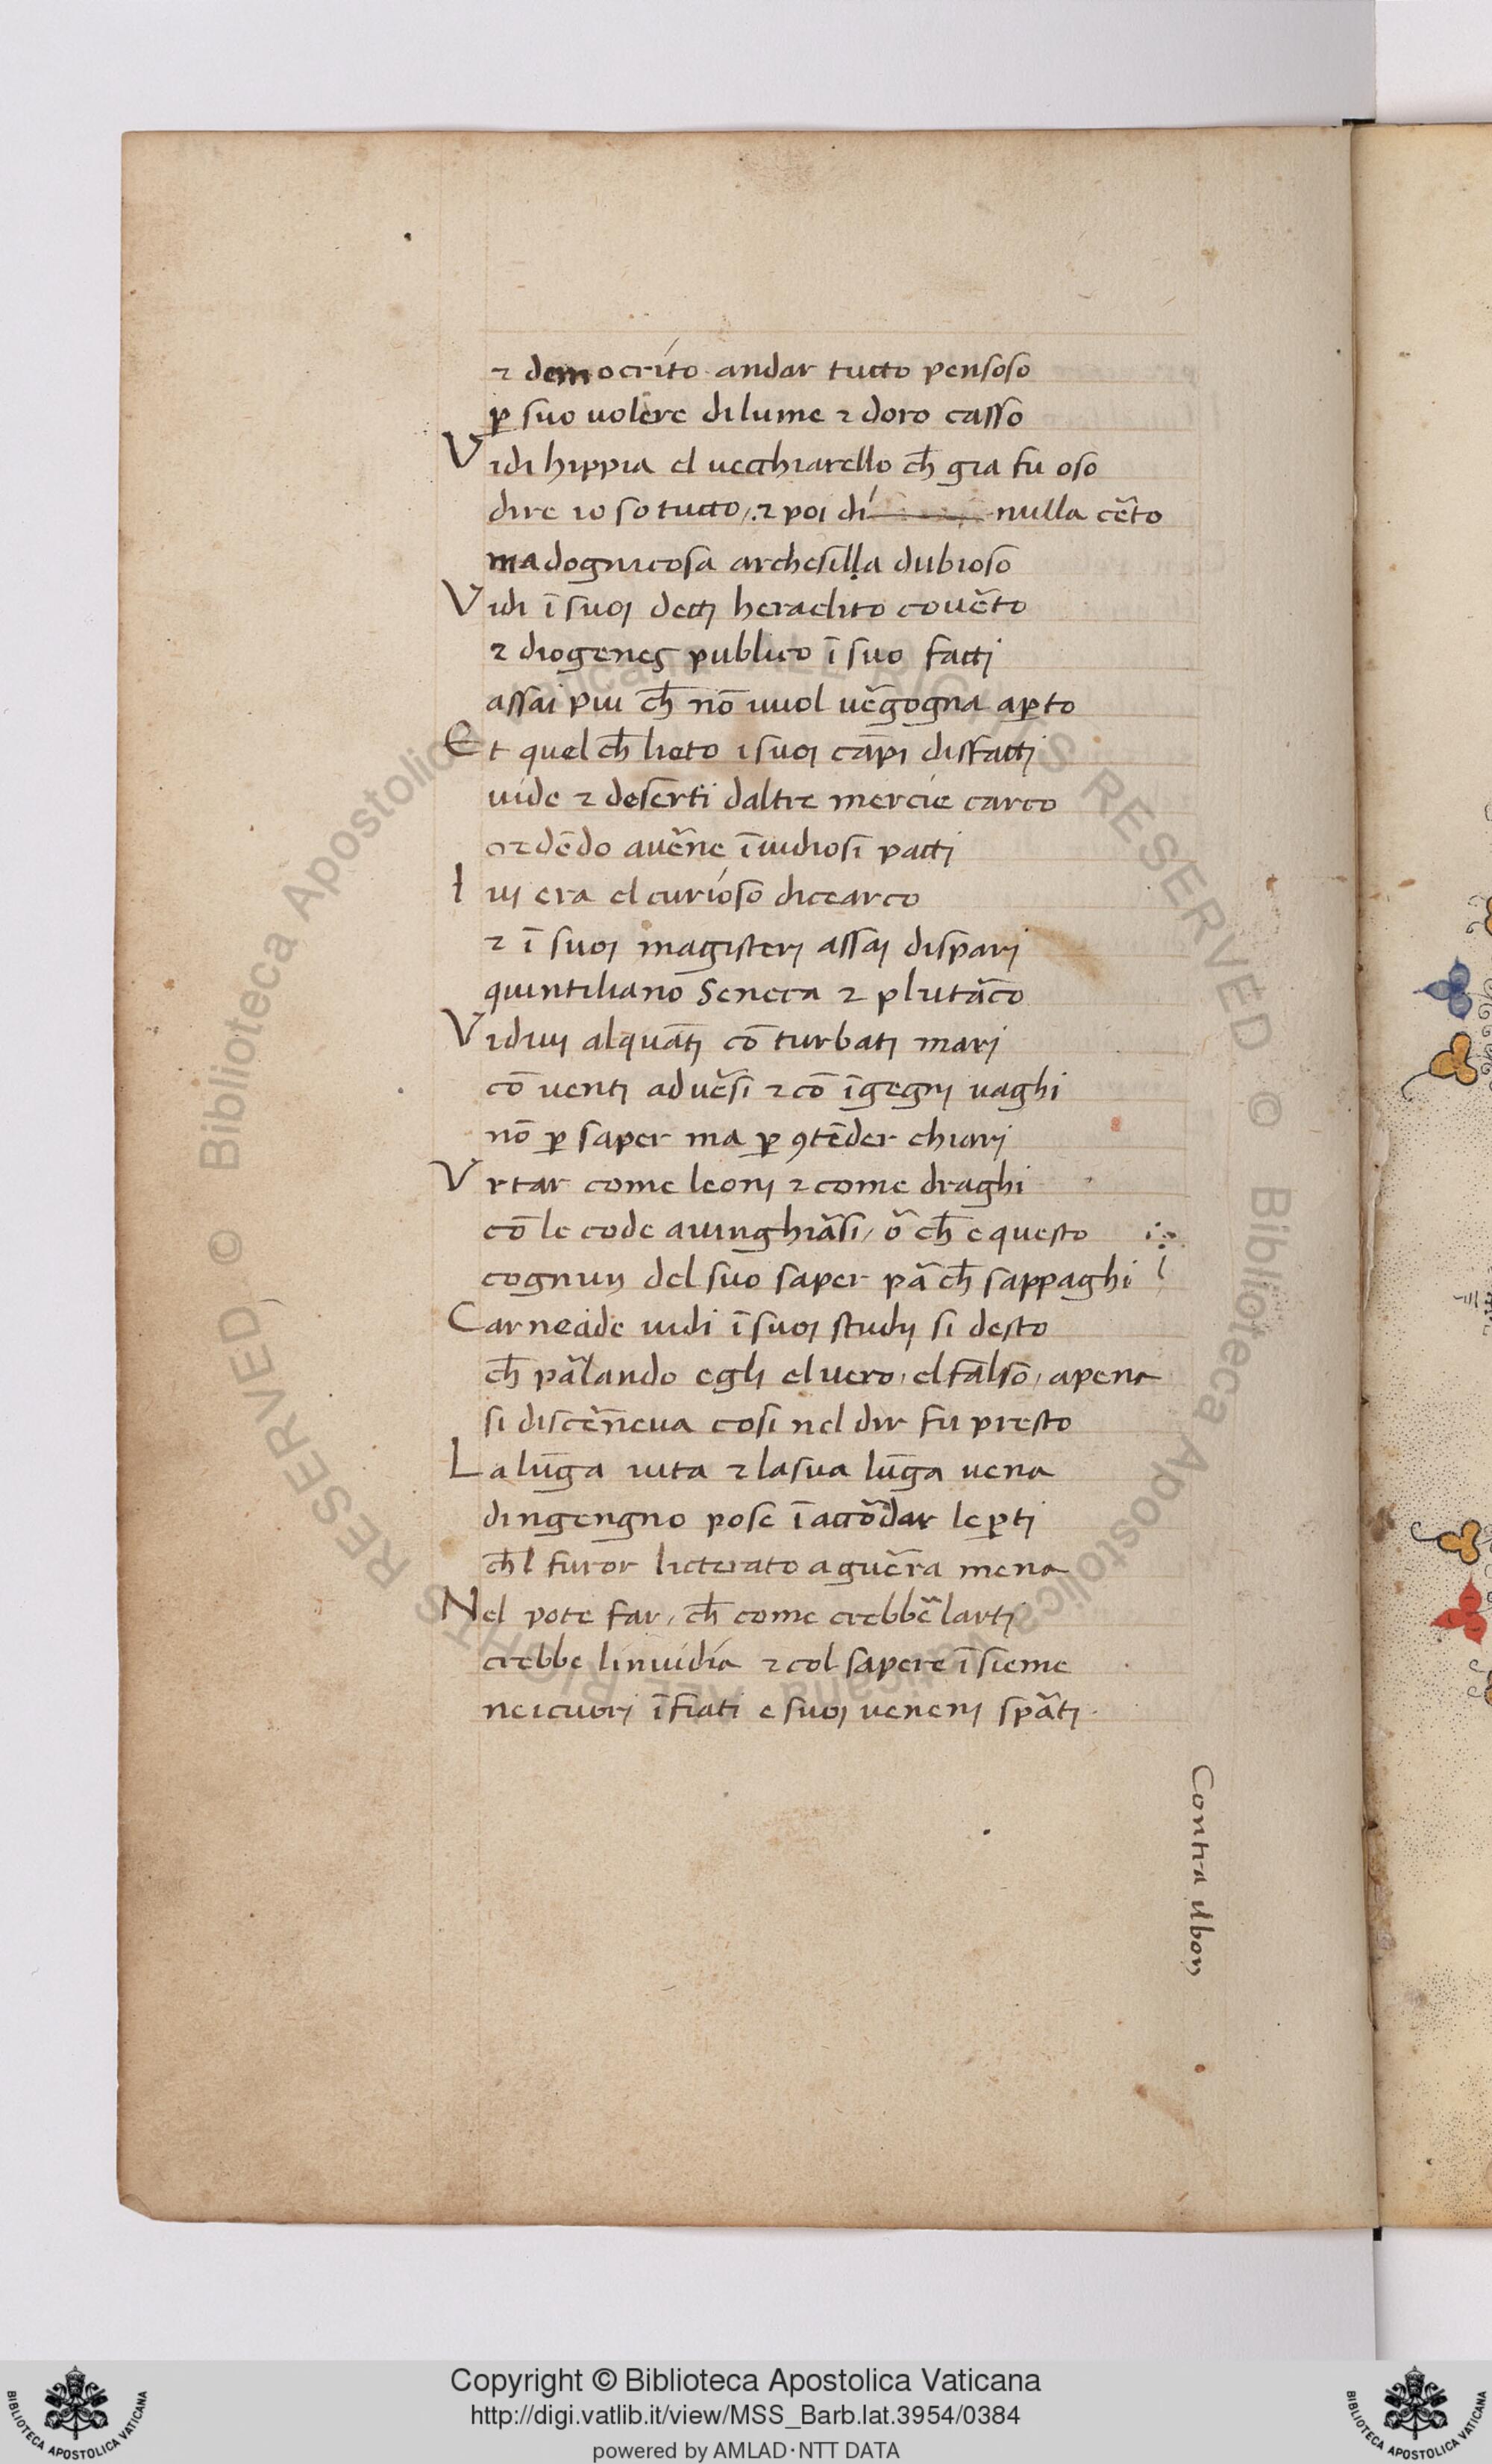 ⁊ democrito andar tucto pensoso
ꝑ suo uolere di lume ⁊ doro casso
Vidi hippia el uecchiarello ch̄ gia fu oso
dire io so tucto, ⁊ poi di nulla cẽto
ma dogni cosa archesilla dubioso
Vidi ī suoj dectj heraclito couẽto
⁊ diogenes publico ī suo factj
assai piu ch̄ nō uuol uẽgogna aꝑto
Et quel ch̄ lieto i suoj cāpi disfactj
uide ⁊ deserti daltre mercie carco
credēdo auẽne īuidiosi pactj
Iuj era el curioso dicearco
⁊ ī suoj magisterj assaj disparj
quintiliano Seneca ⁊ plutãco
Vidiuj alquātj cō turbatj marj
cō uentj aduẽsi ⁊ cō īgegnj uaghi
nō ꝑ saper ma ꝑ ꝯtēder chiarj
Vrtar come leonj ⁊ come draghi
cō le code auinghiãsi, õ ch̄ e questo
cognuņ del suo saper pã ch̄ sappaghi
Carneade uidi ī suoj studij si desto
ch̄ pãlando eglj el uero, el falso, apena
si discẽneua cosi nel dir fu presto
La lūga uita ⁊ la sua lūga uena
dingengno pose ī accõdar le ꝑtj
ch̄l furor licterato a guẽra mena
Nel pote far, ch̄ come crebbẽ lartj
crebbe linuidia ⁊ col sapere īsieme
nei cuorj īfiati e suoj venenj spãtj.
Contra
Copyright © Biblioteca Apostolica Vaticana
http://digi.vatlib.it/view/MSS_Barb.lat.3954/0384
powered by AMLAD·NTT DATA